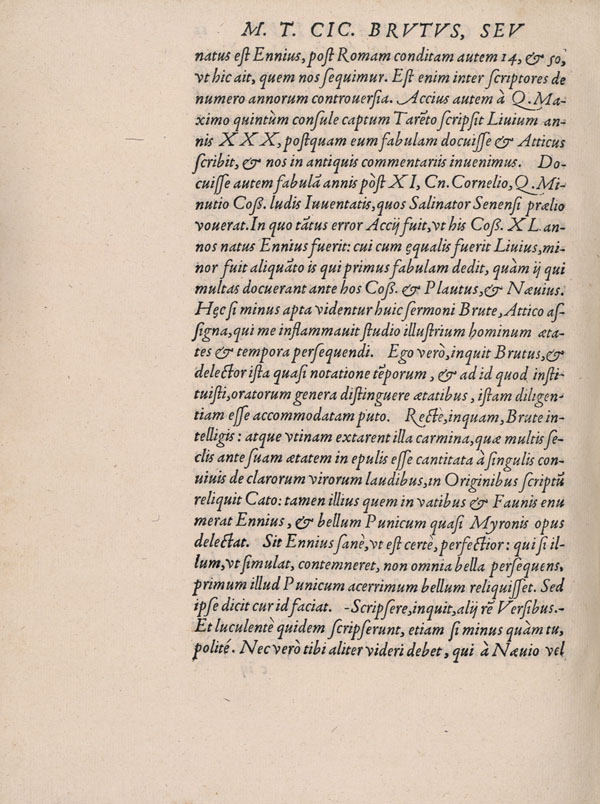 M. T. CIC. BRVTVS, SEV
natus est Ennius, post Romam conditam autem 14, & 50,
vt hic ait, quem nos sequimur. Est enim inter scriptores de
numero annorum controuersia. Accius autem à Q. Ma-
ximo quintùm consule captum Tarẽto scripsit Liuium an-
nis XXX, postquam eum fabulam docuisse & Atticus
scribit, & nos in antiquis commentariis inuenimus. Do-
cuisse autem fabulã annis pòst XI, Cn. Cornelio, Q. Mi-
nutio Coß. ludis Iuuentatis, quos Salinator Senensi prælio
vouerat. In quo tãtus error Accij fuit, vt his Coß. XL an-
nos natus Ennius fuerit: cui cum ęqualis fuerit Liuius, mi-
nor fuit aliquãto is qui primus fabulam dedit, quàm ij qui
multas docuerant ante hos Coß. & Plautus, & Næuius.
Hęc si minus apta videntur huic sermoni Brute, Attico as-
signa, qui me inflammauit studio illustrium hominum æta-
tes & tempora persequendi. Ego verò, inquit Brutus, &
delector ista quasi notatione tẽporum, & ad id quod insti-
tuisti, oratorum genera distinguere ætatibus, istam diligen-
tiam esse accommodatam puto. Rectè, inquam, Brute in-
telligis: atque vtinam extarent illa carmina, quæ multis se-
clis ante suam ætatem in epulis esse cantitata à singulis con-
uiuis de clarorum virorum laudibus, in Originibus scriptũ
reliquit Cato: tamen illius quem in vatibus & Faunis enu
merat Ennius, & bellum Punicum quasi Myronis opus
delectat. Sit Ennius sanè, vt est certè, perfectior: qui si il-
lum, vt simulat, contemneret, non omnia bella persequens,
primum illud Punicum acerrimum bellum reliquisset. Sed
ipse dicit cur id faciat. -Scripsere, inquit, alij rẽ Versibus.-
Et luculentè quidem scripserunt, etiam si minus quàm tu,
politè. Nec verò tibi aliter videri debet, qui à Næuio vel